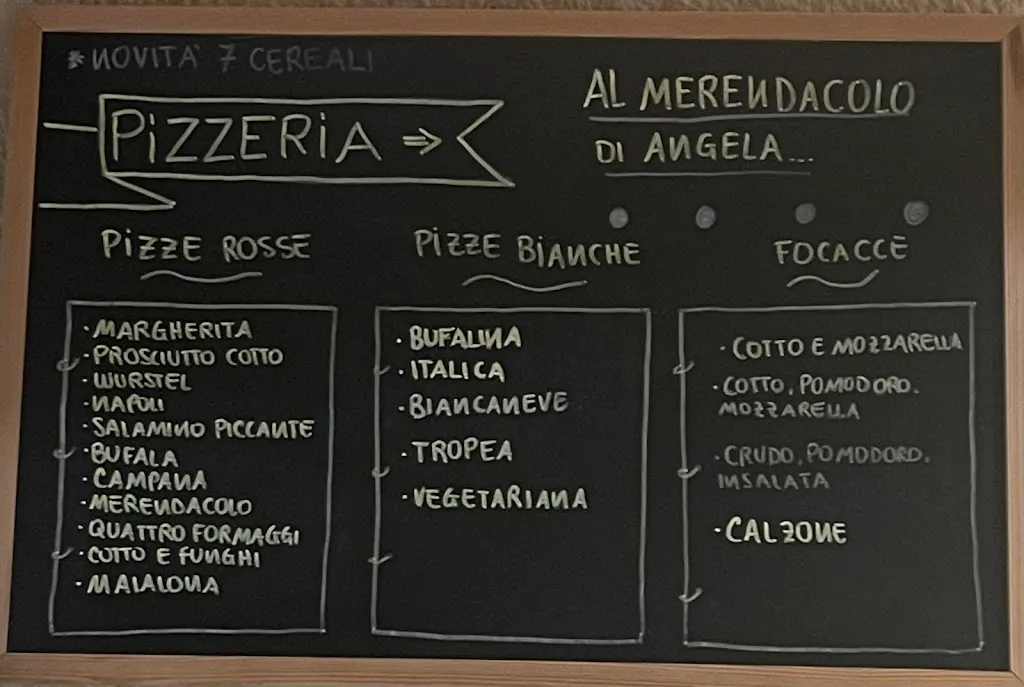 *NOVITA' 7 CEREALI
PIZZERIA ⇒
AL MERENDACOLO
DI ANGELA...
PIZZE ROSSE
· MARGHERITA
· PROSCIUTTO COTTO
· WURSTEL
· NAPOLI
· SALAMINO PICCANTE
· BUFALA
· CAMPANA
· MERENDACOLO
· QUATTRO FORMAGGI
· COTTO E FUNGHI
· MAIALONA
PIZZE BIANCHE
· BUFALINA
· ITALICA
· BIANCANEVE
· TROPEA
· VEGETARIANA
FOCACCE
· COTTO E MOZZARELLA
· COTTO, POMODORO,
MOZZARELLA
· CRUDO, POMODORO,
INSALATA
· CALZONE